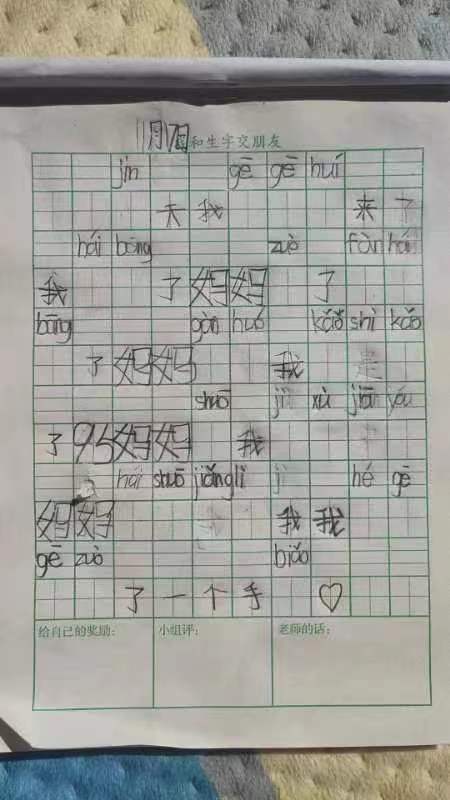 11月17日 和生字交朋友
jīn gē gē huí
天 我 来 了
hái bāng zuò fàn hái
我 了 妈 妈 了
bāng gàn huó kǎo shì kǎo
了 妈 妈 我
shuō jì xù jiā yóu
了 95 妈 妈 我
hái shuō jiǎng lì jì hé gē
妈 妈 我 我
gē zuò biǎo
了 一 个 手 ♡
给自己的奖励： 小组评： 老师的话：